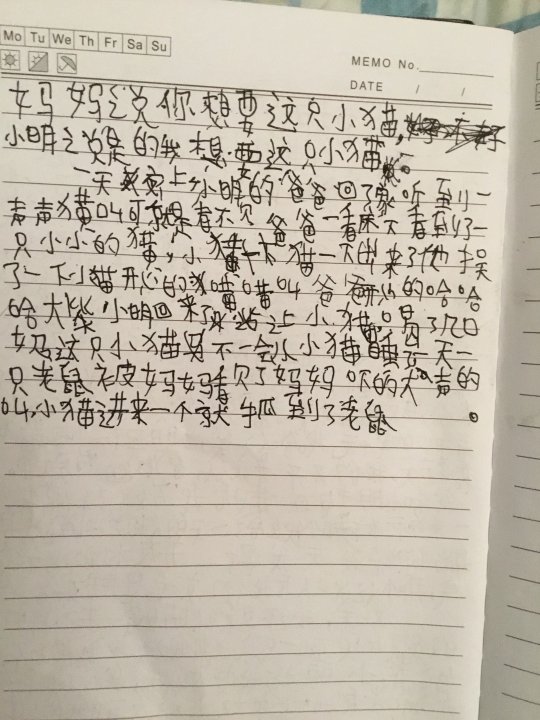 Mo Tu We Th Fr Sa Su
MEMO No.
DATE / /
妈妈说你想要这只小猫,
小明说是的我想要这只小猫。
一天晚上小明的爸爸回了家听到一
声声猫叫可是看不见爸爸一看床下看到了一
只小小的猫,小猫一下出来了他摸
了一下小猫开心的喵喵叫爸爸开心的哈哈
哈大笑小明回来了 小猫 了几口
妈这只小猫 不一会小猫 一天一
只老鼠 妈妈看见了妈妈吓的大声的
叫,小猫进来一个 抓到了老鼠。